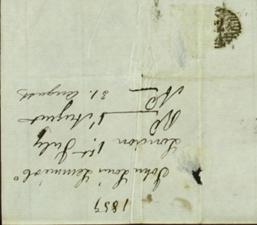 1859
John Louis Lemmé & Co
London 1st July
Rd 1st August
Ad 31. August